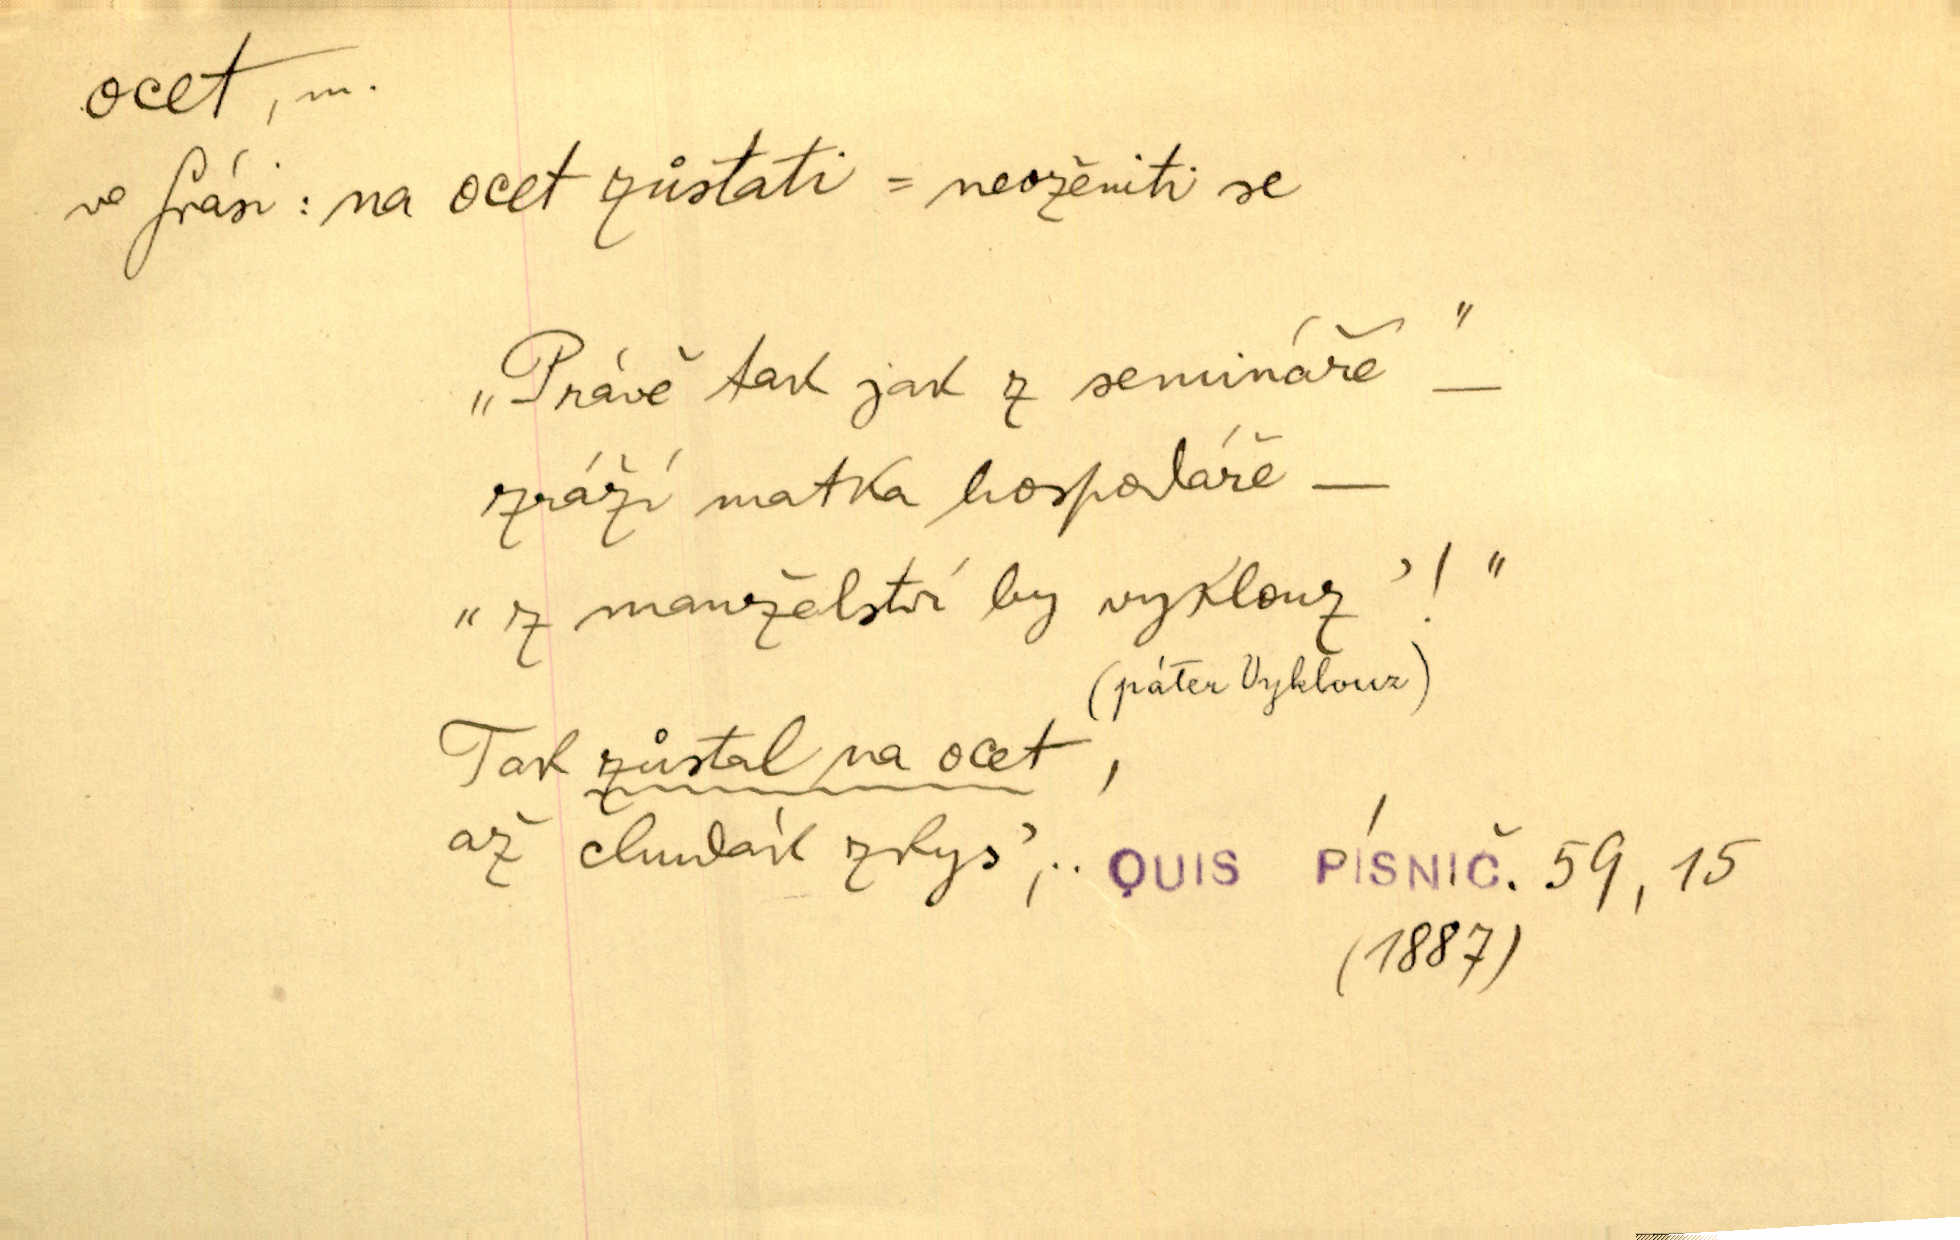 ocet, m.
ve frási: na ocet zůstati = neoženiti se
„Právě tak jak z semináře" —
zráží matka hospodáře —
„z manželství by vyklouz'!"
(páter Vyklouz)
Tak zůstal na ocet,
až chudák zkys',..
QUIS PÍSNIČ. 59, 15
(1887)